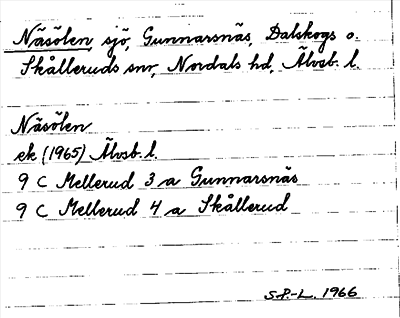 Näsölen, sjö, Gunnarsnäs, Dalskogs o.
Skålleruds snr, Nordals hd, Älvsb. l.
Näsölen
ek (1965) Älvsb. l.
9 C Mellerud 3 a Gunnarsnäs
9 C Mellerud 4 a Skållerud
S.P.-L. 1966